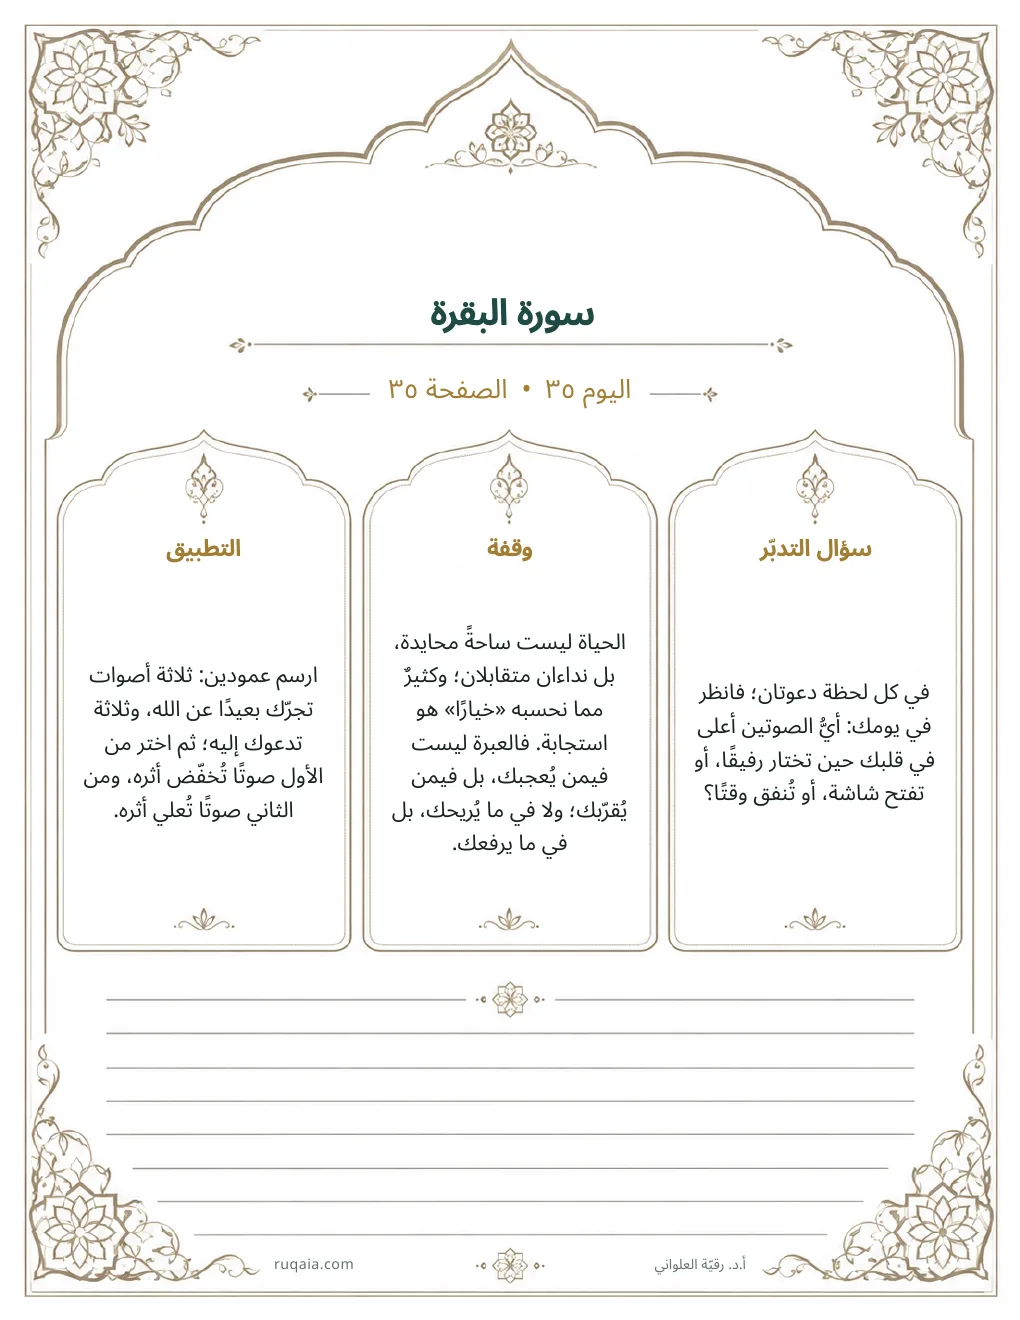 سورة البقرة
اليوم ٣٥ • الصفحة ٣٥
سؤال التدبّر
في كل لحظة دعوتان؛ فانظر
في يومك: أيُّ الصوتين أعلى
في قلبك حين تختار رفيقًا، أو
تفتح شاشة، أو تُنفق وقتًا؟
وقفة
الحياة ليست ساحةً محايدة،
بل نداءان متقابلان؛ وكثيرٌ
مما نحسبه «خيارًا» هو
استجابة. فالعبرة ليست
فيمن يُعجبك، بل فيمن
يُقرّبك؛ ولا في ما يُريحك، بل
في ما يرفعك.
التطبيق
ارسم عمودين: ثلاثة أصوات
تجرّك بعيدًا عن الله، وثلاثة
تدعوك إليه؛ ثم اختر من
الأول صوتًا تُخفّض أثره، ومن
الثاني صوتًا تُعلي أثره.
أ.د. رقيّة العلواني
ruqaia.com